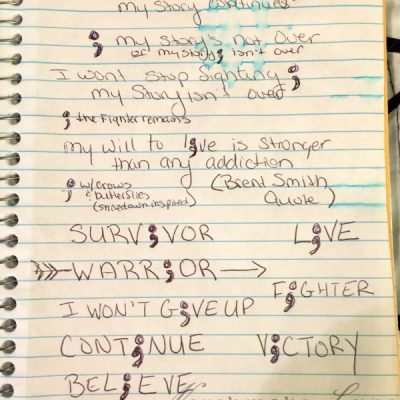 my story continues
; my story's not over
or my story; isn't over
I wont stop fighting ;
my story isn't over
; the Fighter remains
my will to l;ve is stronger
than any addiction
; w/crows (Brent Smith
& butterflies Quote)
(shinedown inspired)
SURV;VOR L;VE
WARR;OR
F;GHTER
I WON'T G;VE UP
CONT;NUE V;CTORY
BEL;EVE